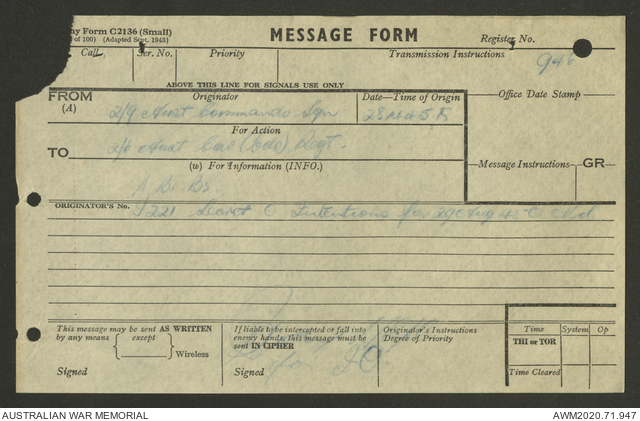 my Form C2136 (Small)
of 100) (Adapted Sept. 1943)
MESSAGE FORM
Register No.
Call
Ser. No.
Priority
Transmission Instructions
946
ABOVE THIS LINE FOR SIGNALS USE ONLY
FROM
(A)
Originator
Date—Time of Origin
Office Date Stamp
2/9 Aust Commando Sqn
For Action
TO
2/6 Aust Cav (Cdo) Regt.
(w) For Information (INFO.)
Message Instructions
GR
ORIGINATOR'S No.
Secret Intentions for Aug
This message may be sent AS WRITTEN
by any means
except
Wireless
Signed
If liable to be intercepted or fall into
enemy hands, this message must be
sent IN CIPHER
Signed
Originator's Instructions
Degree of Priority
Time
System
Op
THI or TOR
Time Cleared
AUSTRALIAN WAR MEMORIAL
AWM2020.71.947